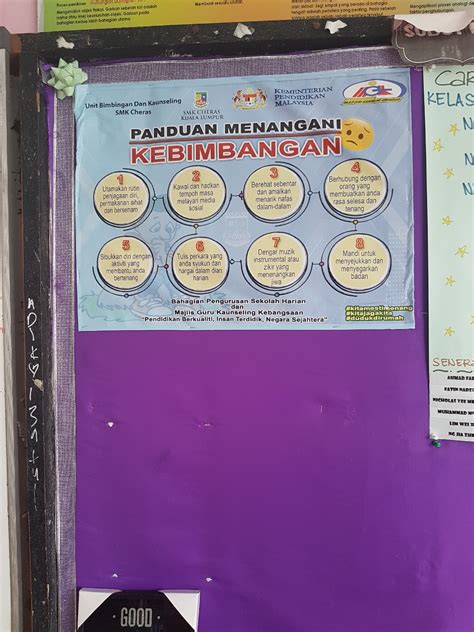 Unit Bimbingan Dan Kaunseling
SMK Cheras
SMK CHERAS
KUALA LUMPUR
KEMENTERIAN
PENDIDIKAN
MALAYSIA
PANDUAN MENANGANI
KEBIMBANGAN
1
Utamakan rutin
penjagaan diri,
pemakanan sihat
dan bersenam
2
Kawal dan hadkan
tempoh masa
melayari media
sosial
3
Berehat sebentar
dan amalkan
menarik nafas
dalam-dalam
4
Berhubung dengan
orang yang
membuatkan anda
rasa selesa dan
tenang
5
Sibukkan diri dengan
aktiviti yang
membantu anda
bertenang
6
Tulis perkara yang
anda syukuri dan
hargai dalam diari
harian
7
Dengar muzik
instrumental atau
zikir yang
menenangkan
jiwa
8
Mandi untuk
menyejukkan dan
menyegarkan
badan
Bahagian Pengurusan Sekolah Harian
dan
Majlis Guru Kaunseling Kebangsaan
"Pendidikan Berkualiti, Insan Terdidik, Negara Sejahtera"
#kitamestimenang
#kitajagakita
#dudukdirumah
KELAS
· GOOD ·